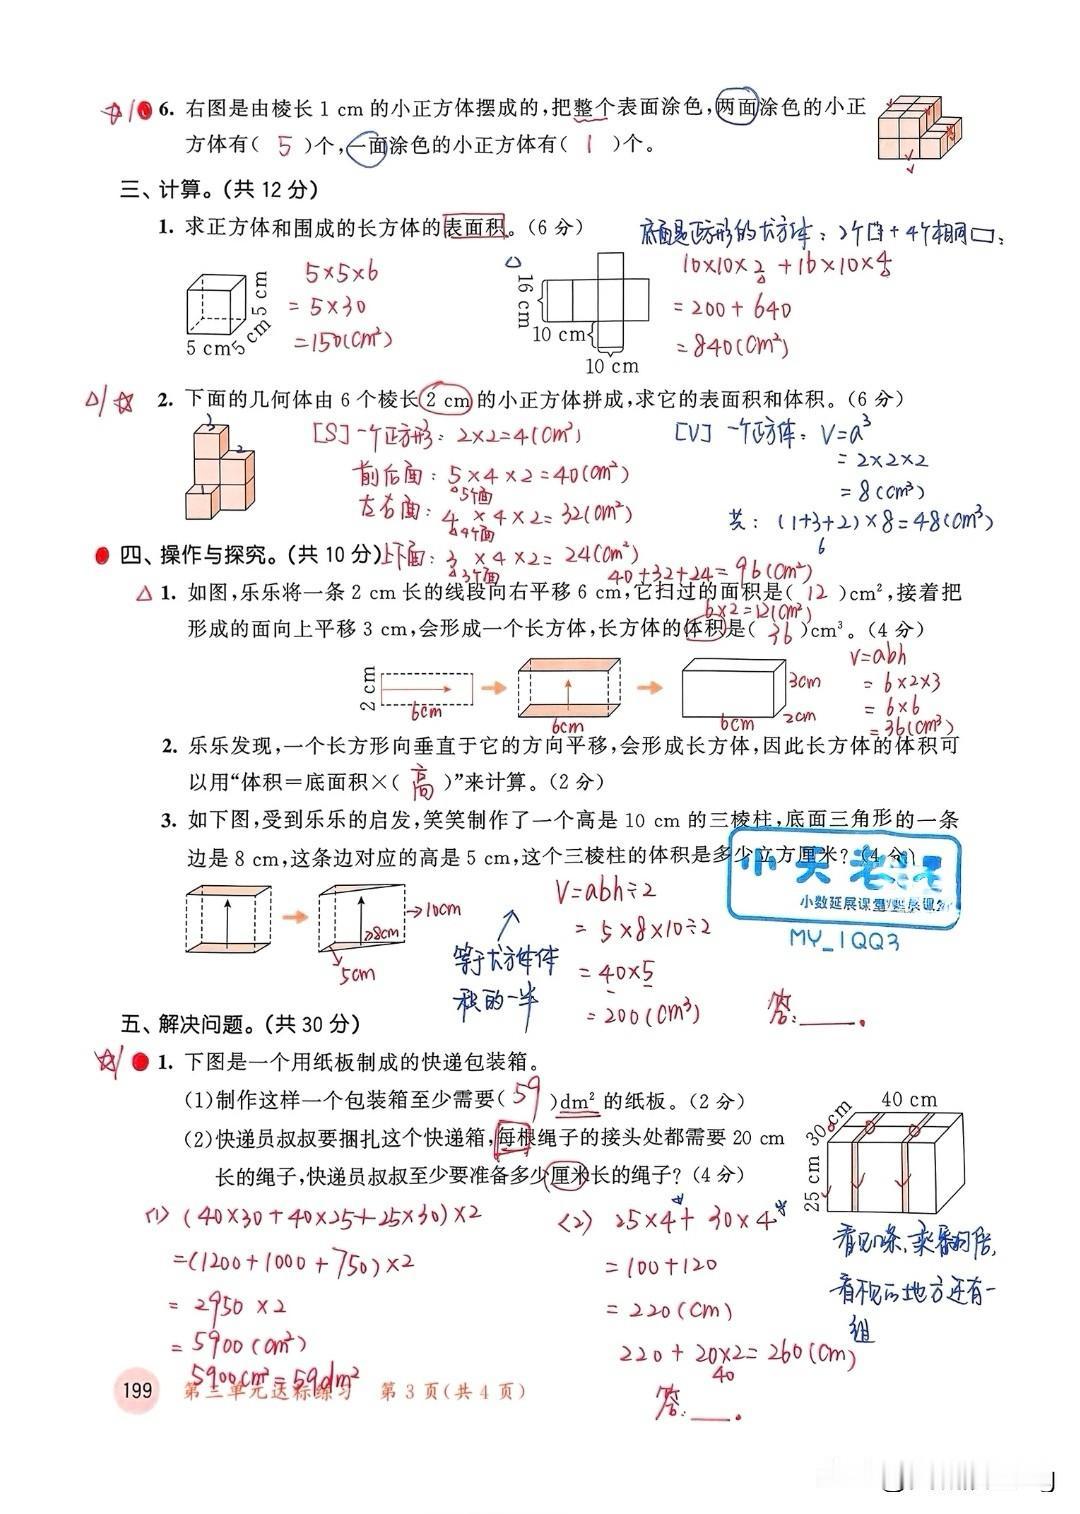 6. 右图是由棱长 1 cm 的小正方体摆成的,把整个表面涂色,两面涂色的小正
方体有( 5 )个,一面涂色的小正方体有( 1 )个。
三、计算。(共 12 分)
1. 求正方体和围成的长方体的表面积。(6 分)
底面是正方形的长方体:2个口+4个相同口;
5 cm
5 cm
5 cm
5×5×6
=5×30
=150(cm²)
16 cm
10 cm
10 cm
10×10×2+16×10×4
=200+640
=840(cm²)
2. 下面的几何体由 6 个棱长 2 cm 的小正方体拼成,求它的表面积和体积。(6 分)
3
2
1
[S]一个正方形:2×2=4(cm²)
前后面:5×4×2=40(cm²)
5个面
左右面:4×4×2=32(cm²)
4个面
上下面:3×4×2=24(cm²)
3个面
40+32+24=96(cm²)
[V]一个正方体:V=a³
=2×2×2
=8(cm³)
共:(1+3+2)×8=48(cm³)
6
四、操作与探究。(共 10 分)
1. 如图,乐乐将一条 2 cm 长的线段向右平移 6 cm,它扫过的面积是( 12 )cm²,接着把
6×2=12(cm²)
形成的面向上平移 3 cm,会形成一个长方体,长方体的体积是( 36 )cm³。(4 分)
2 cm
6cm
6cm
6cm
3cm
2cm
V=abh
=6×2×3
=6×6
=36(cm³)
2. 乐乐发现,一个长方形向垂直于它的方向平移,会形成长方体,因此长方体的体积可
以用“体积=底面积×( 高 )”来计算。(2 分)
3. 如下图,受到乐乐的启发,笑笑制作了一个高是 10 cm 的三棱柱,底面三角形的一条
边是 8 cm,这条边对应的高是 5 cm,这个三棱柱的体积是多少立方厘米?(4 分)
10cm
8cm
5cm
等于长方体体
积的一半
V=abh÷2
=5×8×10÷2
=40×5
=200(cm³)
答:____.
小数延展课堂
MY_1QQ3
五、解决问题。(共 30 分)
1. 下图是一个用纸板制成的快递包装箱。
(1)制作这样一个包装箱至少需要( 59 )dm² 的纸板。(2 分)
(2)快递员叔叔要捆扎这个快递箱,每根绳子的接头处都需要 20 cm
长的绳子,快递员叔叔至少要准备多少厘米长的绳子?(4 分)
40 cm
30 cm
25 cm
(1) (40×30+40×25+25×30)×2
=(1200+1000+750)×2
=2950×2
=5900(cm²)
5900cm²=59dm²
(2) 25×4+30×4
=100+120
=220(cm)
220+20×2=260(cm)
40
答:___.
看不见的地方还有一
组
199
第三单元达标练习 第 3 页(共 4 页)